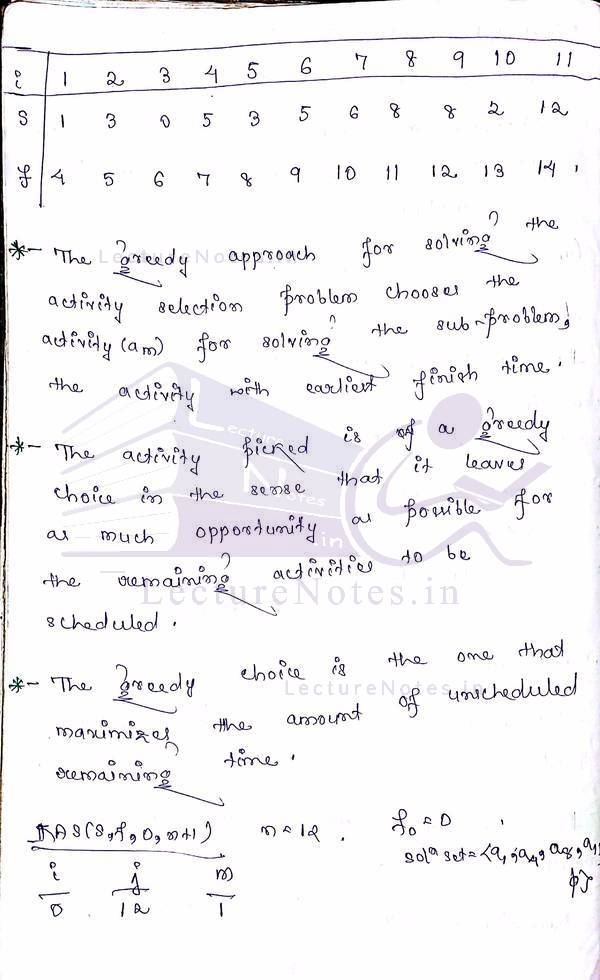 i 1 2 3 4 5 6 7 8 9 10 11
S 1 3 0 5 3 5 6 8 8 2 12
f 4 5 6 7 8 9 10 11 12 13 14
*- The greedy approach for solving the
activity selection problem chooses the
activity (am) for solving the sub-problem,
the activity with earliest finish time.
*- The activity picked is of a greedy
choice in the sense that it leaves
as much opportunity as possible for
the remaining activities to be
scheduled.
*- The greedy choice is the one that
maximizes the amount of unscheduled
remaining time.
RAS(s,f,0,n+1) n=12. f0=0
soln set=<a1,a4,a8,a1
i j m
0 12 1
LectureNotes.in
Lecture
Notes
.in
LectureNotes.in
LectureNotes.in